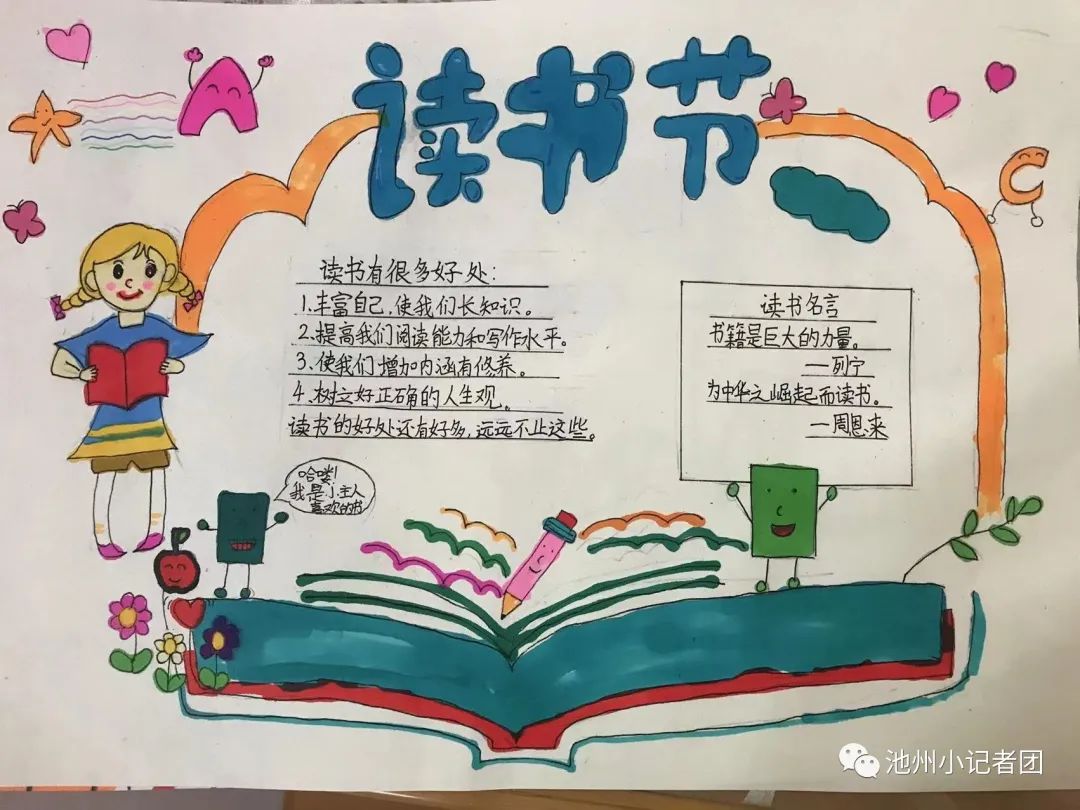 读书节
读书有很多好处:
1.丰富自己,使我们长知识。
2.提高我们阅读能力和写作水平。
3.使我们增加内涵有修养。
4.树立好正确的人生观。
读书的好处还有好多,远远不止这些。
读书名言
书籍是巨大的力量。
—列宁
为中华之崛起而读书。
—周恩来
哈喽!
我是小主人
喜欢的书
池州小记者团